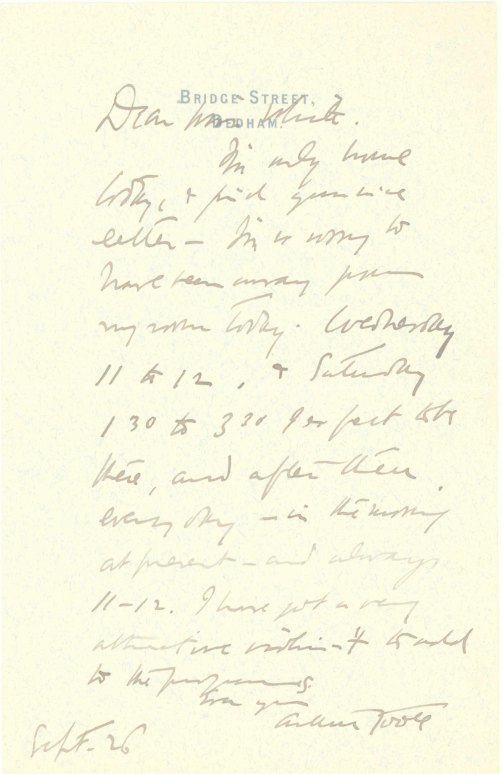 BRIDGE STREET,
DEDHAM.
Dear Mrs White.
I'm only home
today, & find your nice
letter — I'm so sorry to
have been away from
my room today. Wednesday
11 to 12, & Saturday
1 30 to 3 30 I expect to be
there, and after then
every day — in the morning
at present — and always
11-12. I have got a very
attractive to add
to the programs.
Ever yrs
Arthur Foote
Sept. 26